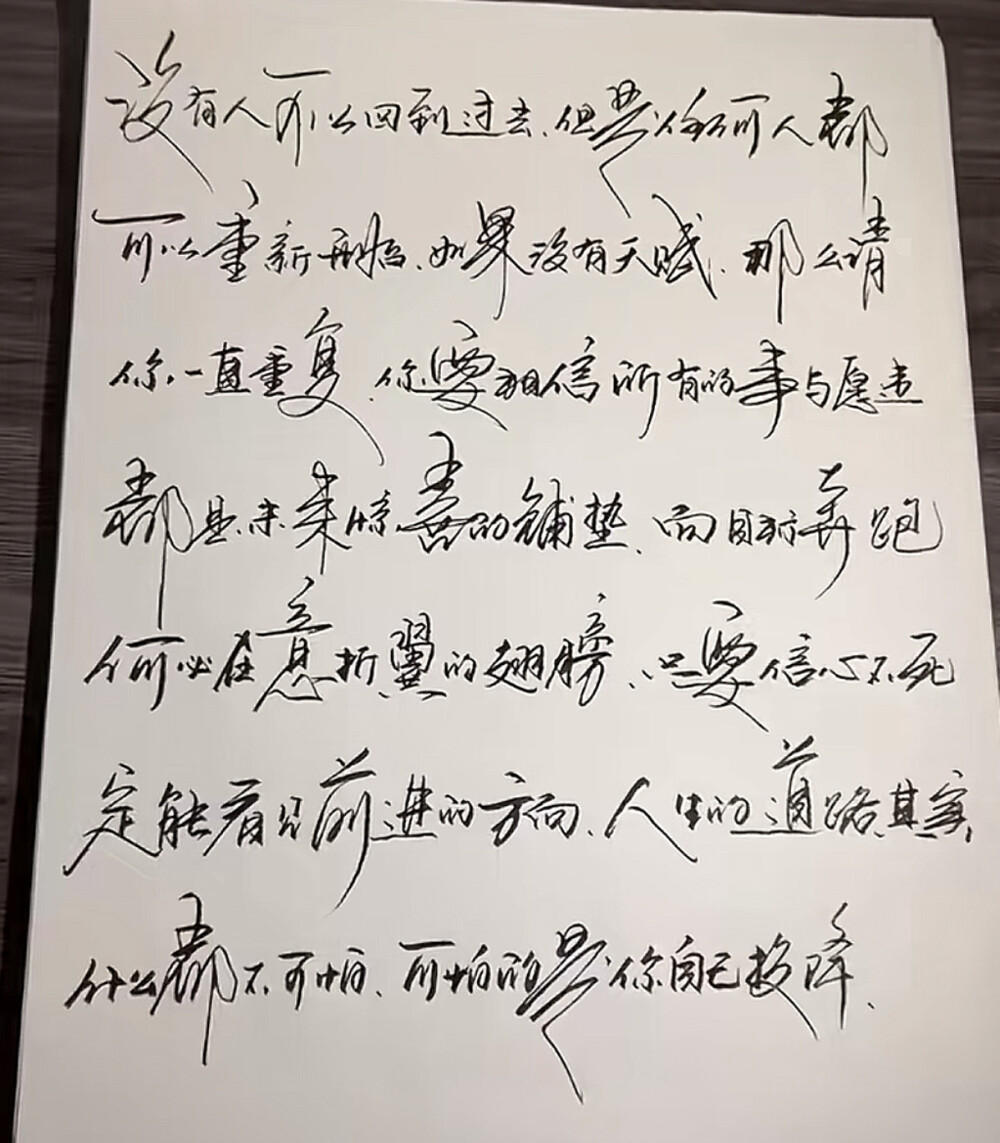 没有人可以回到过去、但是任何人都
可以重新开始、如果没有天赋、那么请
你一直重复、你要相信所有的事与愿违
都是未来惊喜的铺垫、向目标奔跑
何必在意折翼的翅膀、只要信心不死
定能看见前进的方向、人生的道路其实
什么都不可怕、可怕的是你自己投降、